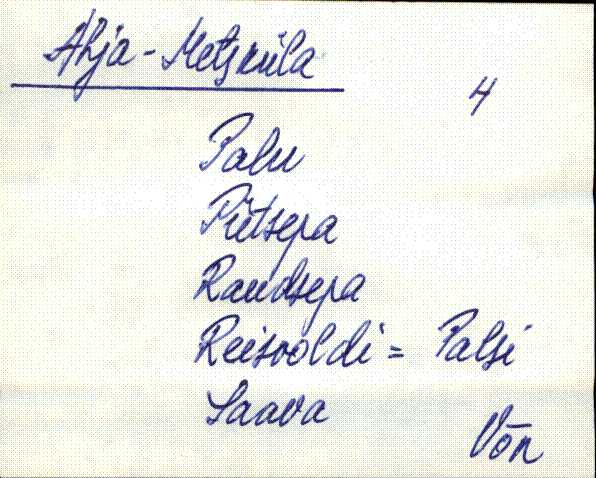 Ahja-Metsküla
4
Palu
Pütsepa
Raudsepa
Reisooldi = Palsi
Saava
Võn